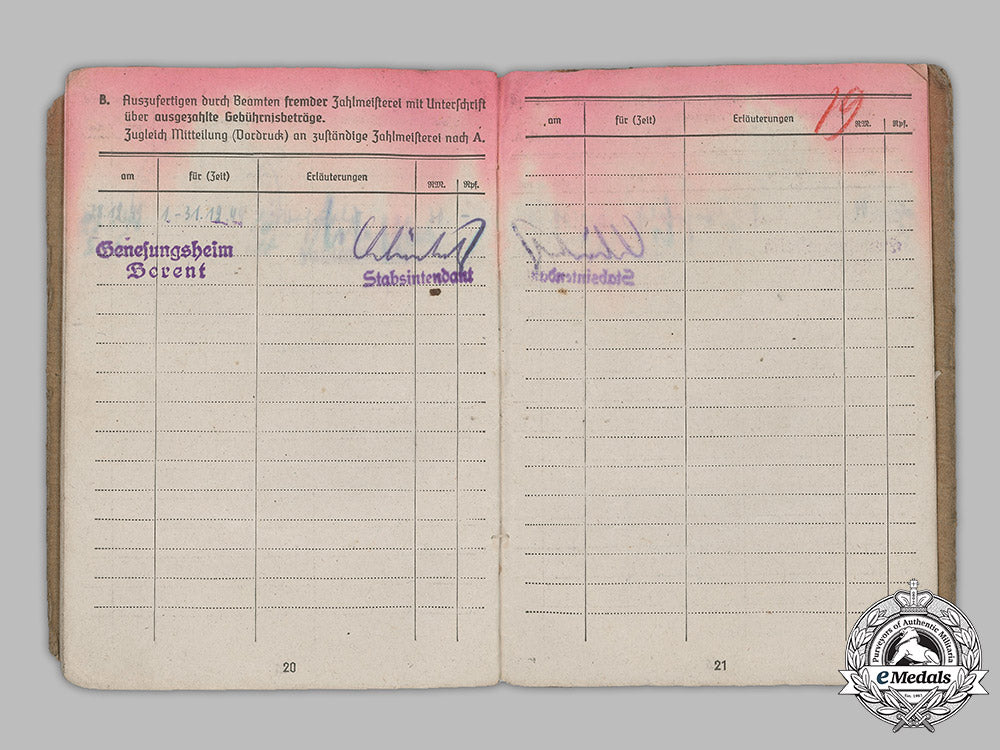 B. Auszufertigen durch Beamten fremder Zahlmeisterei mit Unterschrift
über ausgezahlte Gebührnisbeträge.
Zugleich Mitteilung (Vordruck) an zuständige Zahlmeisterei nach A.
am für (Zeit) Erläuterungen RM. Rpf.
1.-31.12.41
Genesungsheim
Berent
Stabsintendant
20
19
am für (Zeit) Erläuterungen RM. Rpf.
21
Purveyors of Authentic Militaria
eMedals